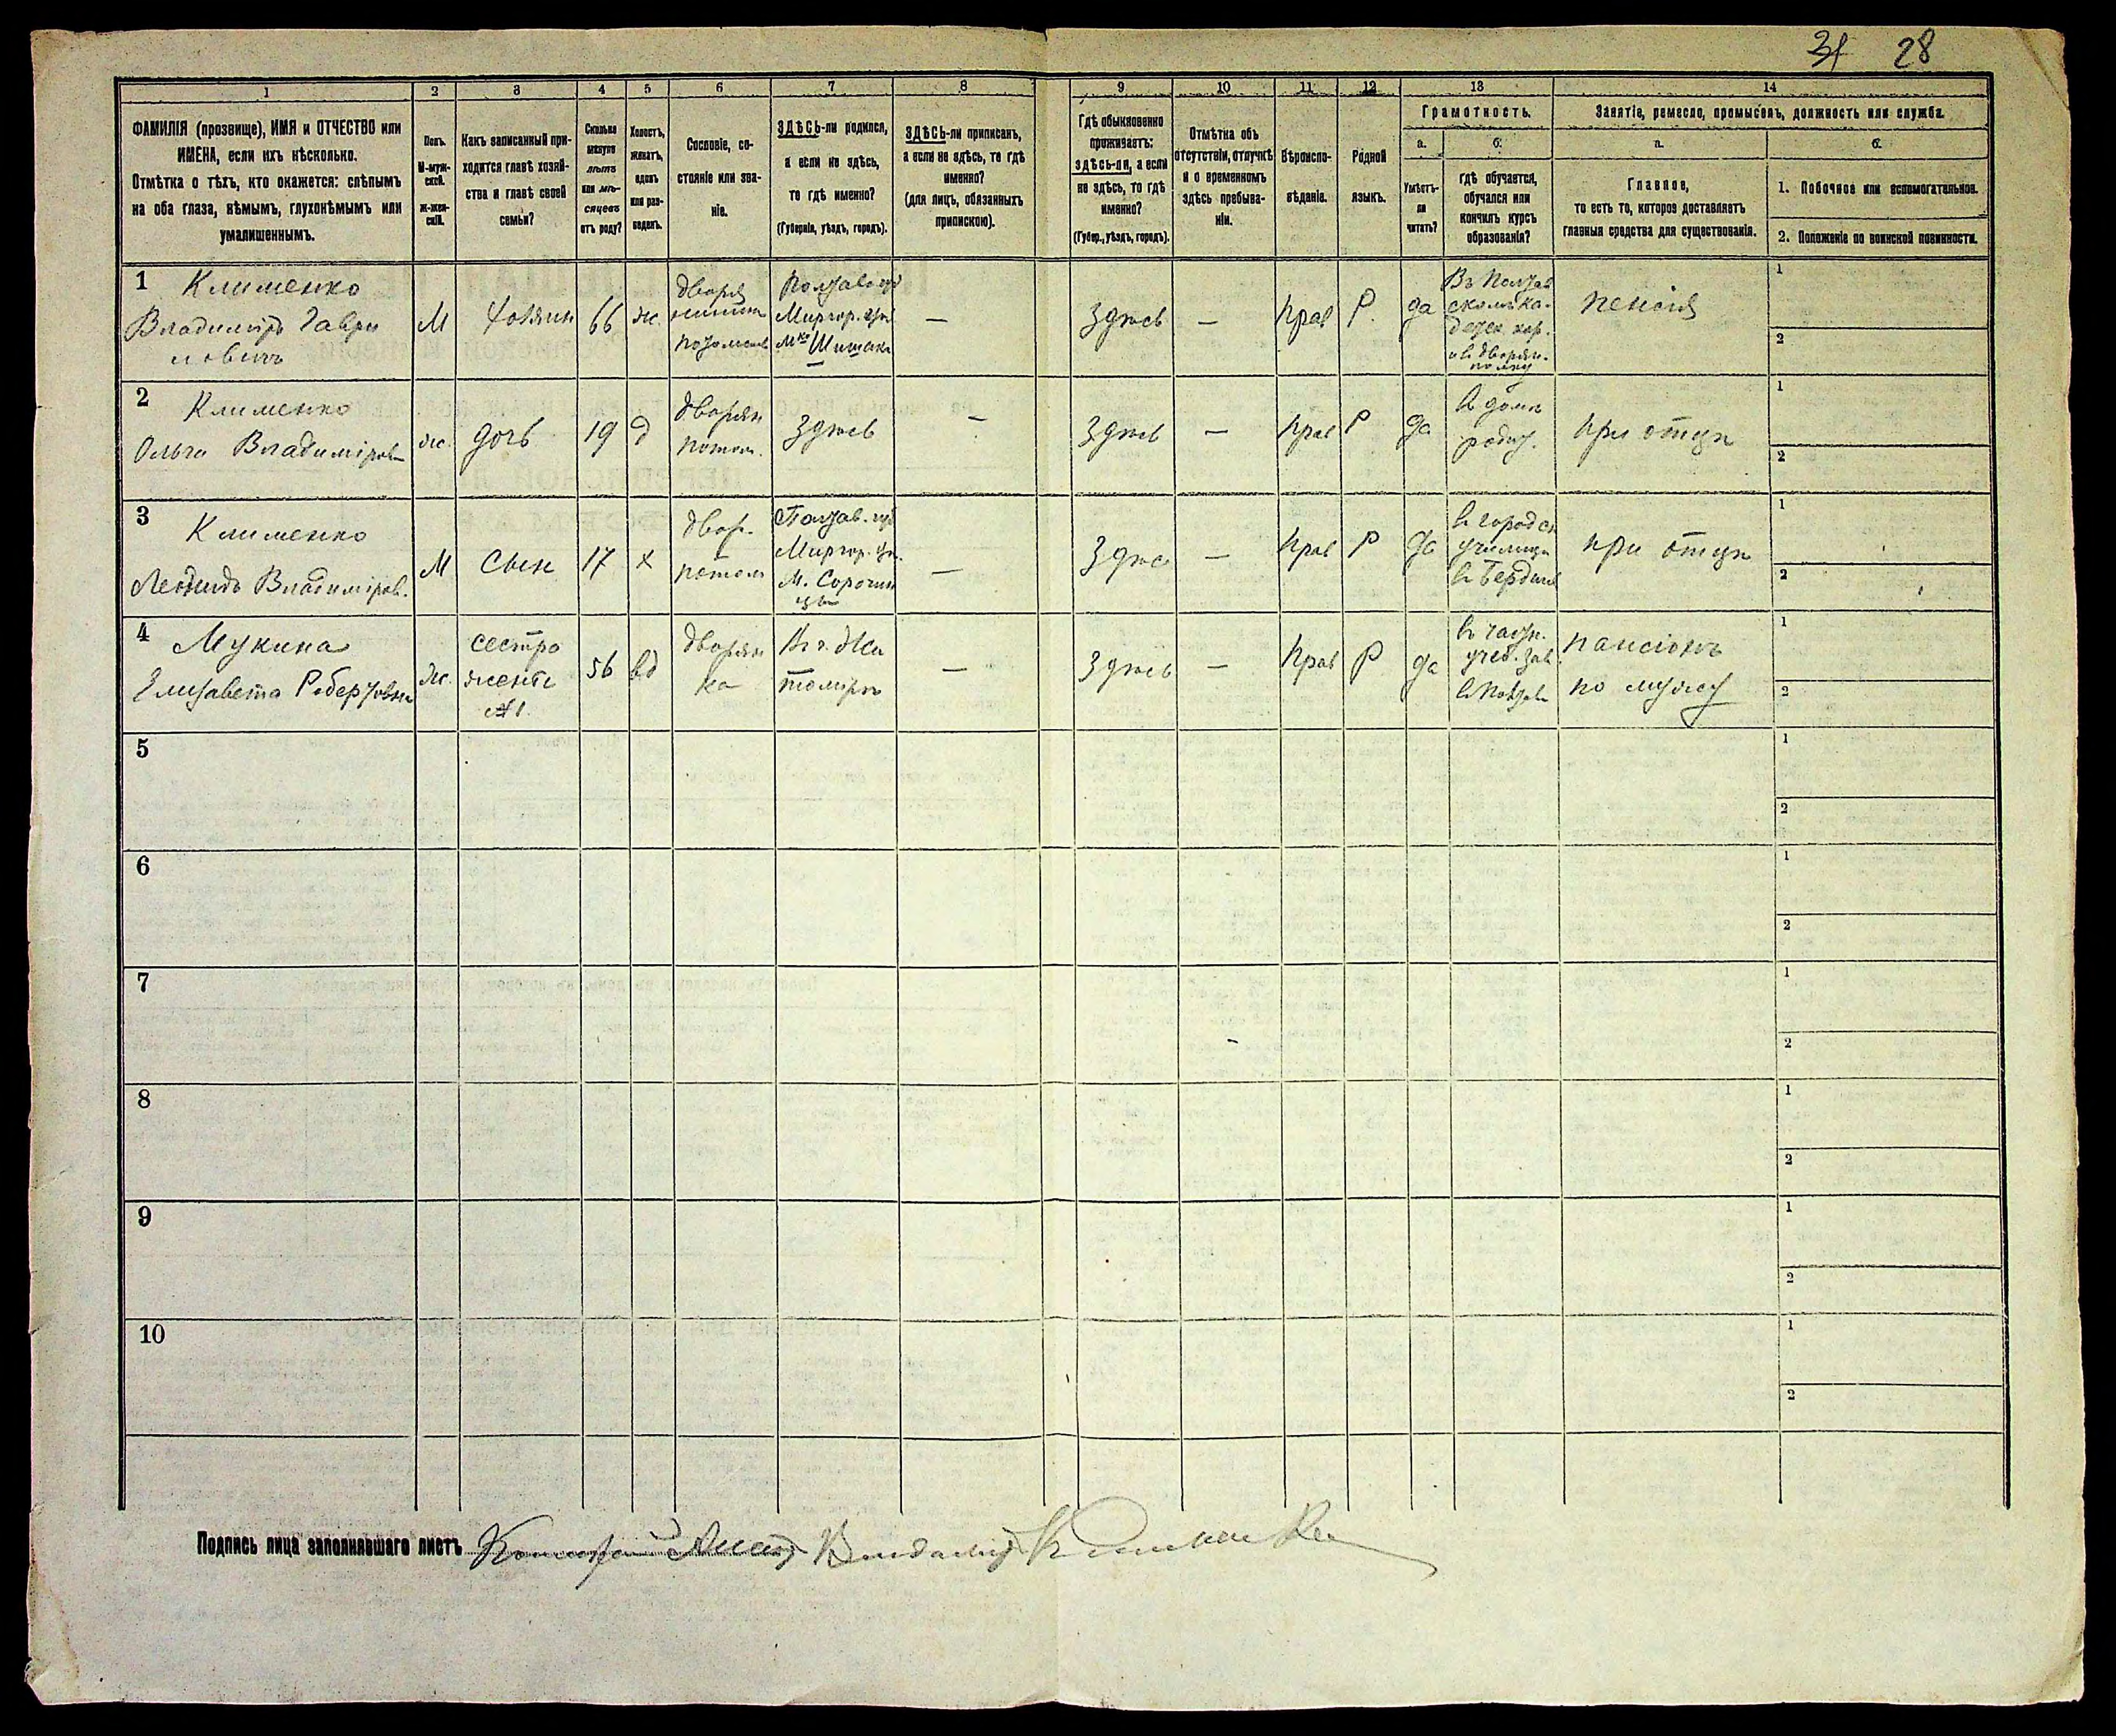 31 28
1 2 3 4 5 6 7 8 9 10 11 12 13 14
ФАМИЛІЯ (прозвище), ИМЯ и ОТЧЕСТВО или
ИМЕНА, если ихъ нѣсколько.
Отмѣтка о тѣхъ, кто окажется: слѣпымъ
на оба глаза, нѣмымъ, глухонѣмымъ или
умалишеннымъ.
Полъ.
М-муж-
ской.
Ж-жен-
скій.
Какъ записанный при-
ходится главѣ хозяй-
ства и главѣ своей
семьи?
Сколько
минуло
лѣтъ
или мѣ-
сяцевъ
отъ роду?
Холостъ,
женатъ,
вдовъ
или раз-
веденъ.
Сословіе, со-
стояніе или зва-
ніе.
ЗДѢСЬ-ли родился,
а если не здѣсь,
то гдѣ именно?
(Губернія, уѣздъ, городъ).
ЗДѢСЬ-ли приписанъ,
а если не здѣсь, то гдѣ
именно?
(для лицъ, обязанныхъ
припискою).
Гдѣ обыкновенно
проживаетъ:
здѣсь-ли, а если
не здѣсь, то гдѣ
именно?
(Губер., уѣздъ, городъ).
Отмѣтка объ
отсутствіи, отлучкѣ
и о временномъ
здѣсь пребыва-
ніи.
Вѣроиспо-
вѣданіе.
Родной
языкъ.
Грамотность.
а.
Умѣетъ-
ли
читать?
б.
гдѣ обучается,
обучался или
кончилъ курсъ
образованія?
Занятіе, ремесло, промыселъ, должность или служба.
а.
Главное,
то есть то, которое доставляетъ
главныя средства для существованія.
б.
1. Побочное или вспомогательное.
2. Положеніе по воинской повинности.
1 Клименко
Владиміръ Гаври
ловичъ
М
Хозяин
66
ж.
дворя
нинъ
потомств
Полтав. губ
Миргор. уѣз
Мко Шишаки
—
Здѣсь
—
прав
Р.
да
Въ Полтав
скомъ ка-
детск кор.
и в дворян.
полку
пенсія
1
2
2 Клименко
Ольга Владиміров
ж.
дочь
19
д
дворян
потом.
Здѣсь
—
Здѣсь
—
прав
Р
да
в домѣ
родит.
при отцѣ
1
2
3 Клименко
Леонидъ Владиміров.
М
сын
17
х
двор.
потом
Полтав. губ
Миргор. уѣз.
М. Сорочин
цы
—
Здѣс
—
прав
Р
да
в городск
училищѣ
в Бердичев
при отцѣ
1
2
4 Мукина
Елизавета Робертовна
ж.
сестра
жены
№ 1.
56
вд
дворян
ка
В г. Жи
томірѣ
—
Здѣсь
—
прав
Р
да
в частн.
учеб. зав.
в Полтав
пансіонъ
по мужу
1
2
5
1
2
6
1
2
7
1
2
8
1
2
9
1
2
10
1
2
Подпись лица заполнявшаго листъ Владимір Клименко